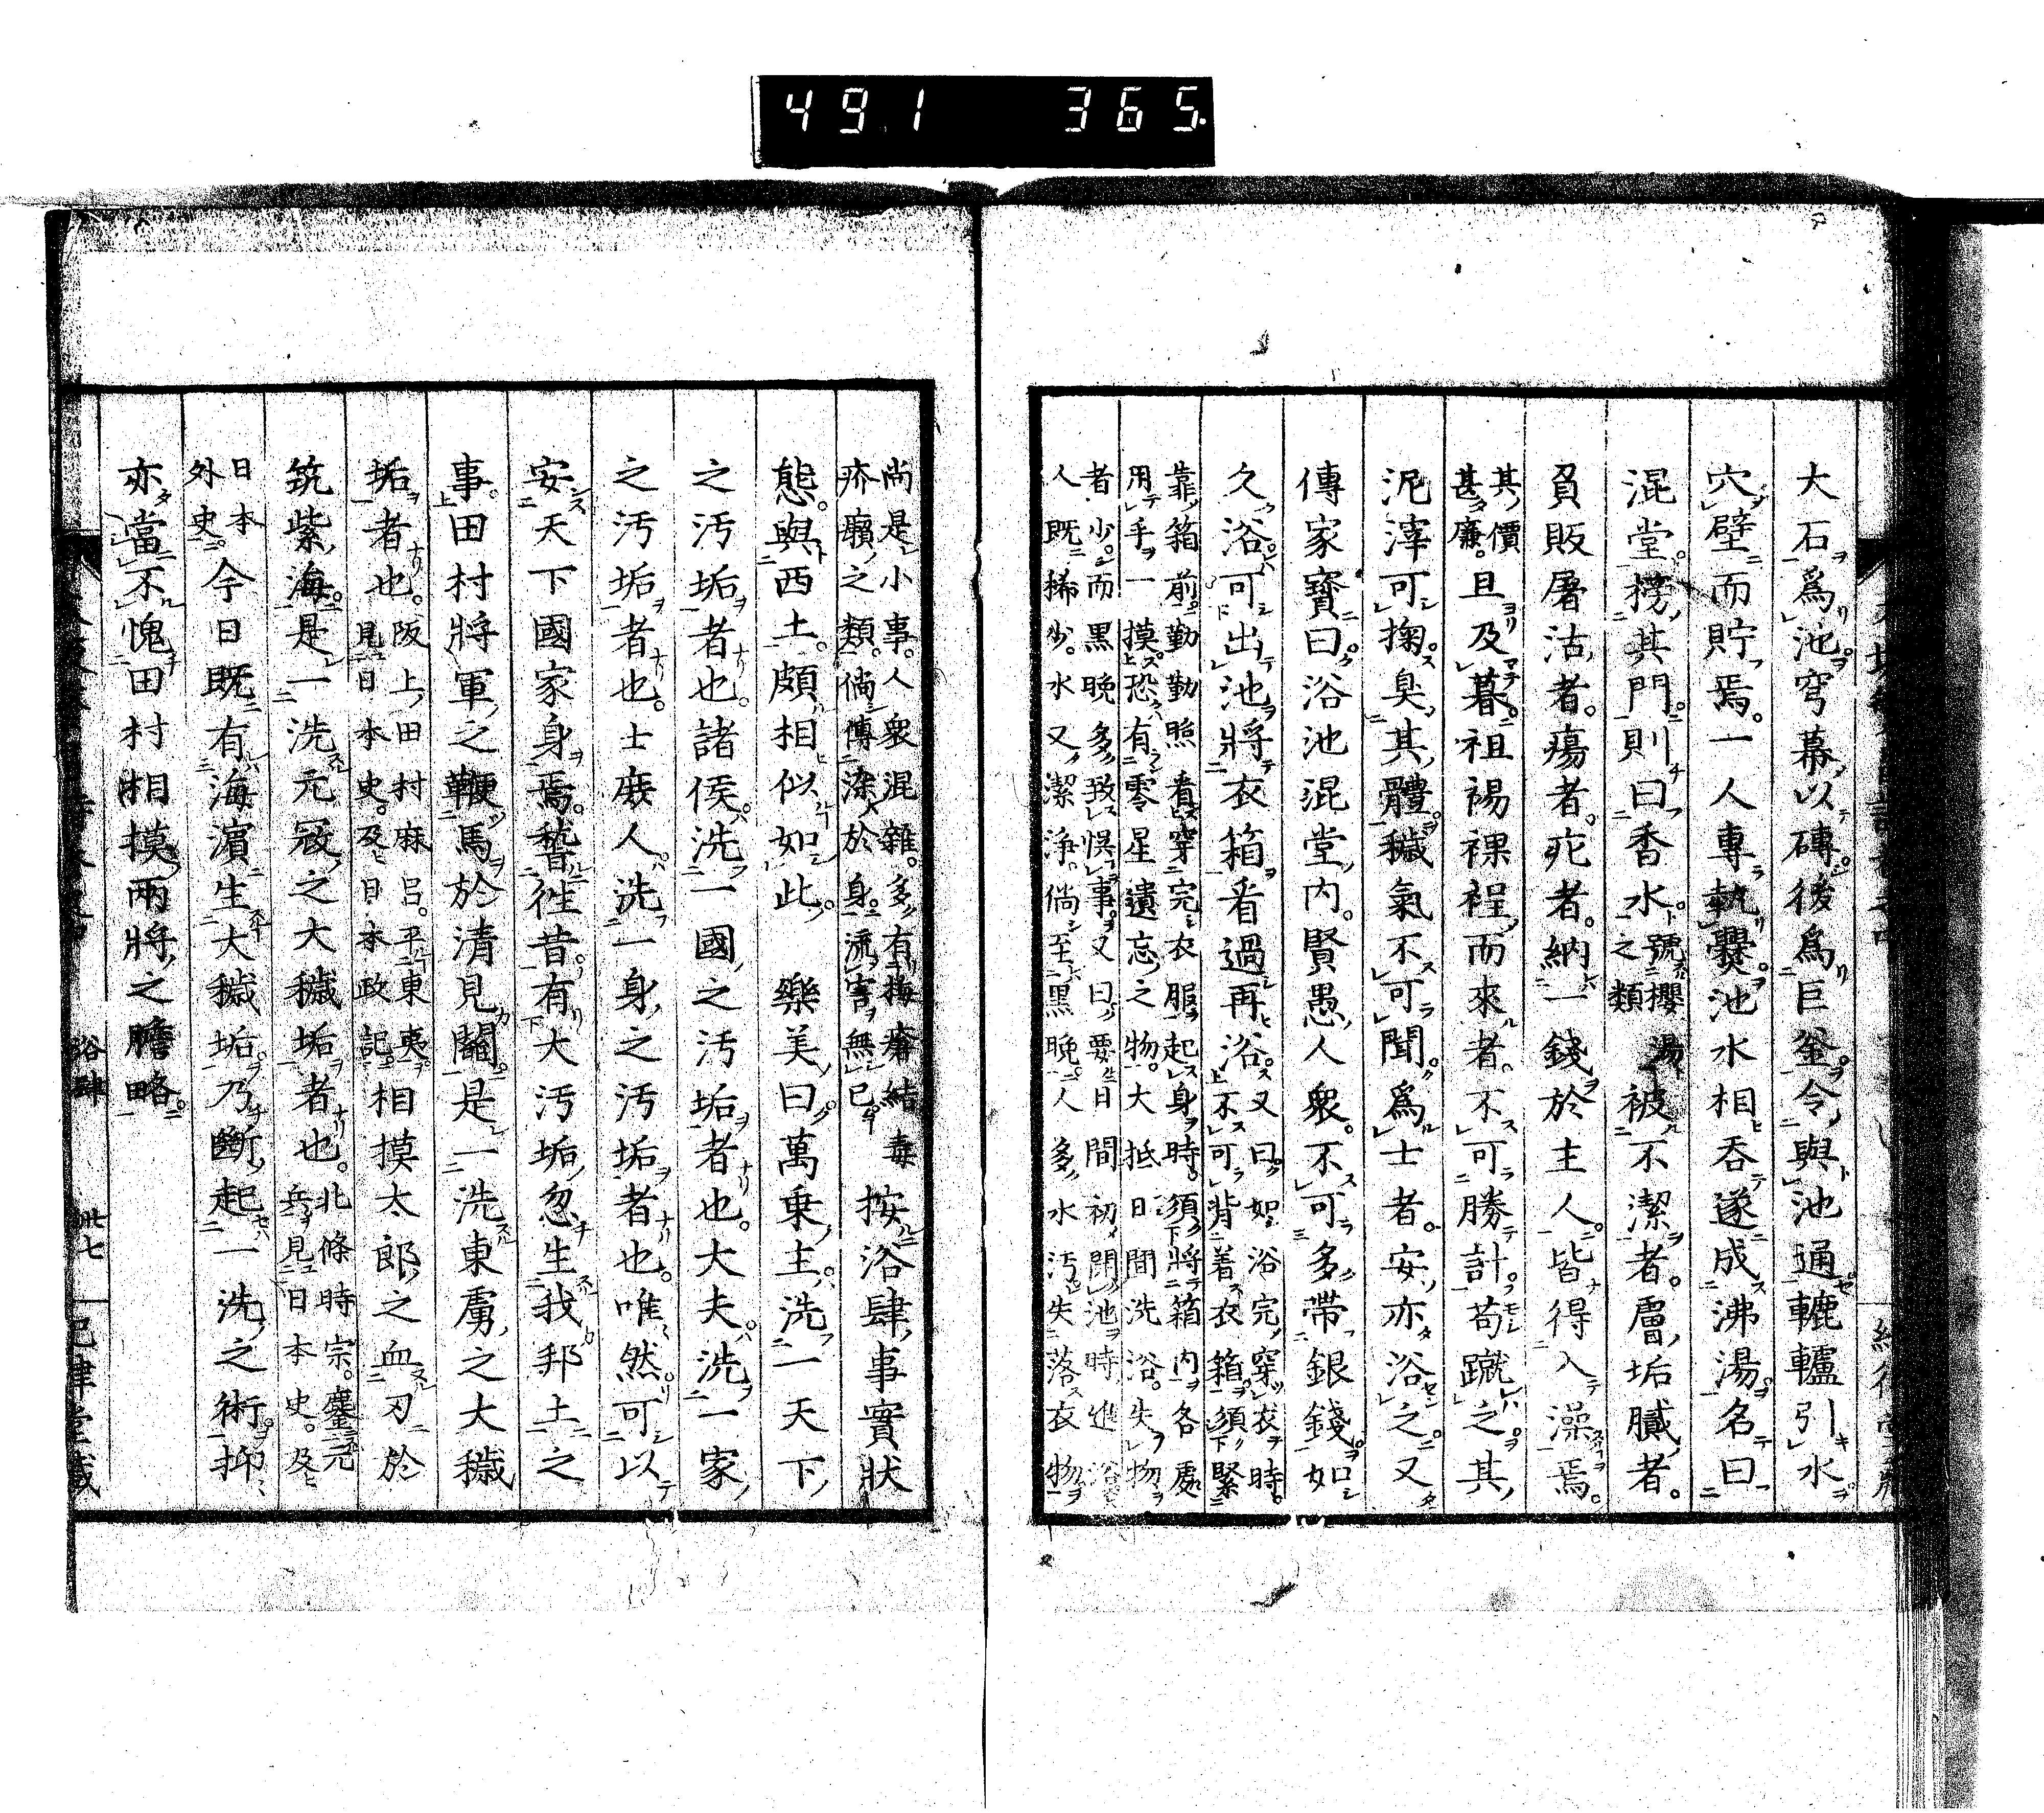 491 365.
大石爲池穹幕以磚後爲巨釜令與池通轆轤引水
穴壁而貯焉一人專執爨池水相吞遂成沸湯名曰
混堂榜其門則曰香水號櫻湯之類被不潔者膚垢膩者
負販屠沽者瘍者疕者納一錢於主人皆得入澡焉
其價甚廉且及暮袒裼裸裎而來者不可勝計苟蹴之其
泥滓可掬臭其體穢氣不可聞爲士者安亦浴之又
傳家寶曰浴池混堂內賢愚人衆不可多帶銀錢如
久浴可出池將衣箱看過再浴又曰如浴完穿衣時不可背着衣箱須緊
靠箱前勤勤照看穿完衣服起身時須將箱內各處
用手一摸恐有零星遺忘之物大抵日間洗浴失物
者少而黑晚多致悞事又曰要日間初開池時進浴
人既稀少水又潔淨倘至黑晚人多水汚失落衣物
尚是小事人衆混雜多有梅瘡結毒
疥癩之類倘傳染於身流害無已按浴肆事實狀
態與西土頗相似如此 樂美曰萬乘主洗一天下
之汚垢者也諸侯洗一國之汚垢者也大夫洗一家
之汚垢者也士庶人洗一身之汚垢者也唯然可以
安天下國家身焉稽徃昔有大汚垢忽生我邦土之
事田村將軍之鞭馬於清見關是一洗東虜之大穢
垢者也阪上田村麻呂平東夷見日本史及日本政記相摸太郎之血刃於
筑紫海是一洗元寇之大穢垢者也北條時宗鏖元兵見日本史及
日本外史今日既有海濵生大穢垢乃斷起一洗之術抑
亦當不愧田村相摸兩將之膽略
浴肆 卅七